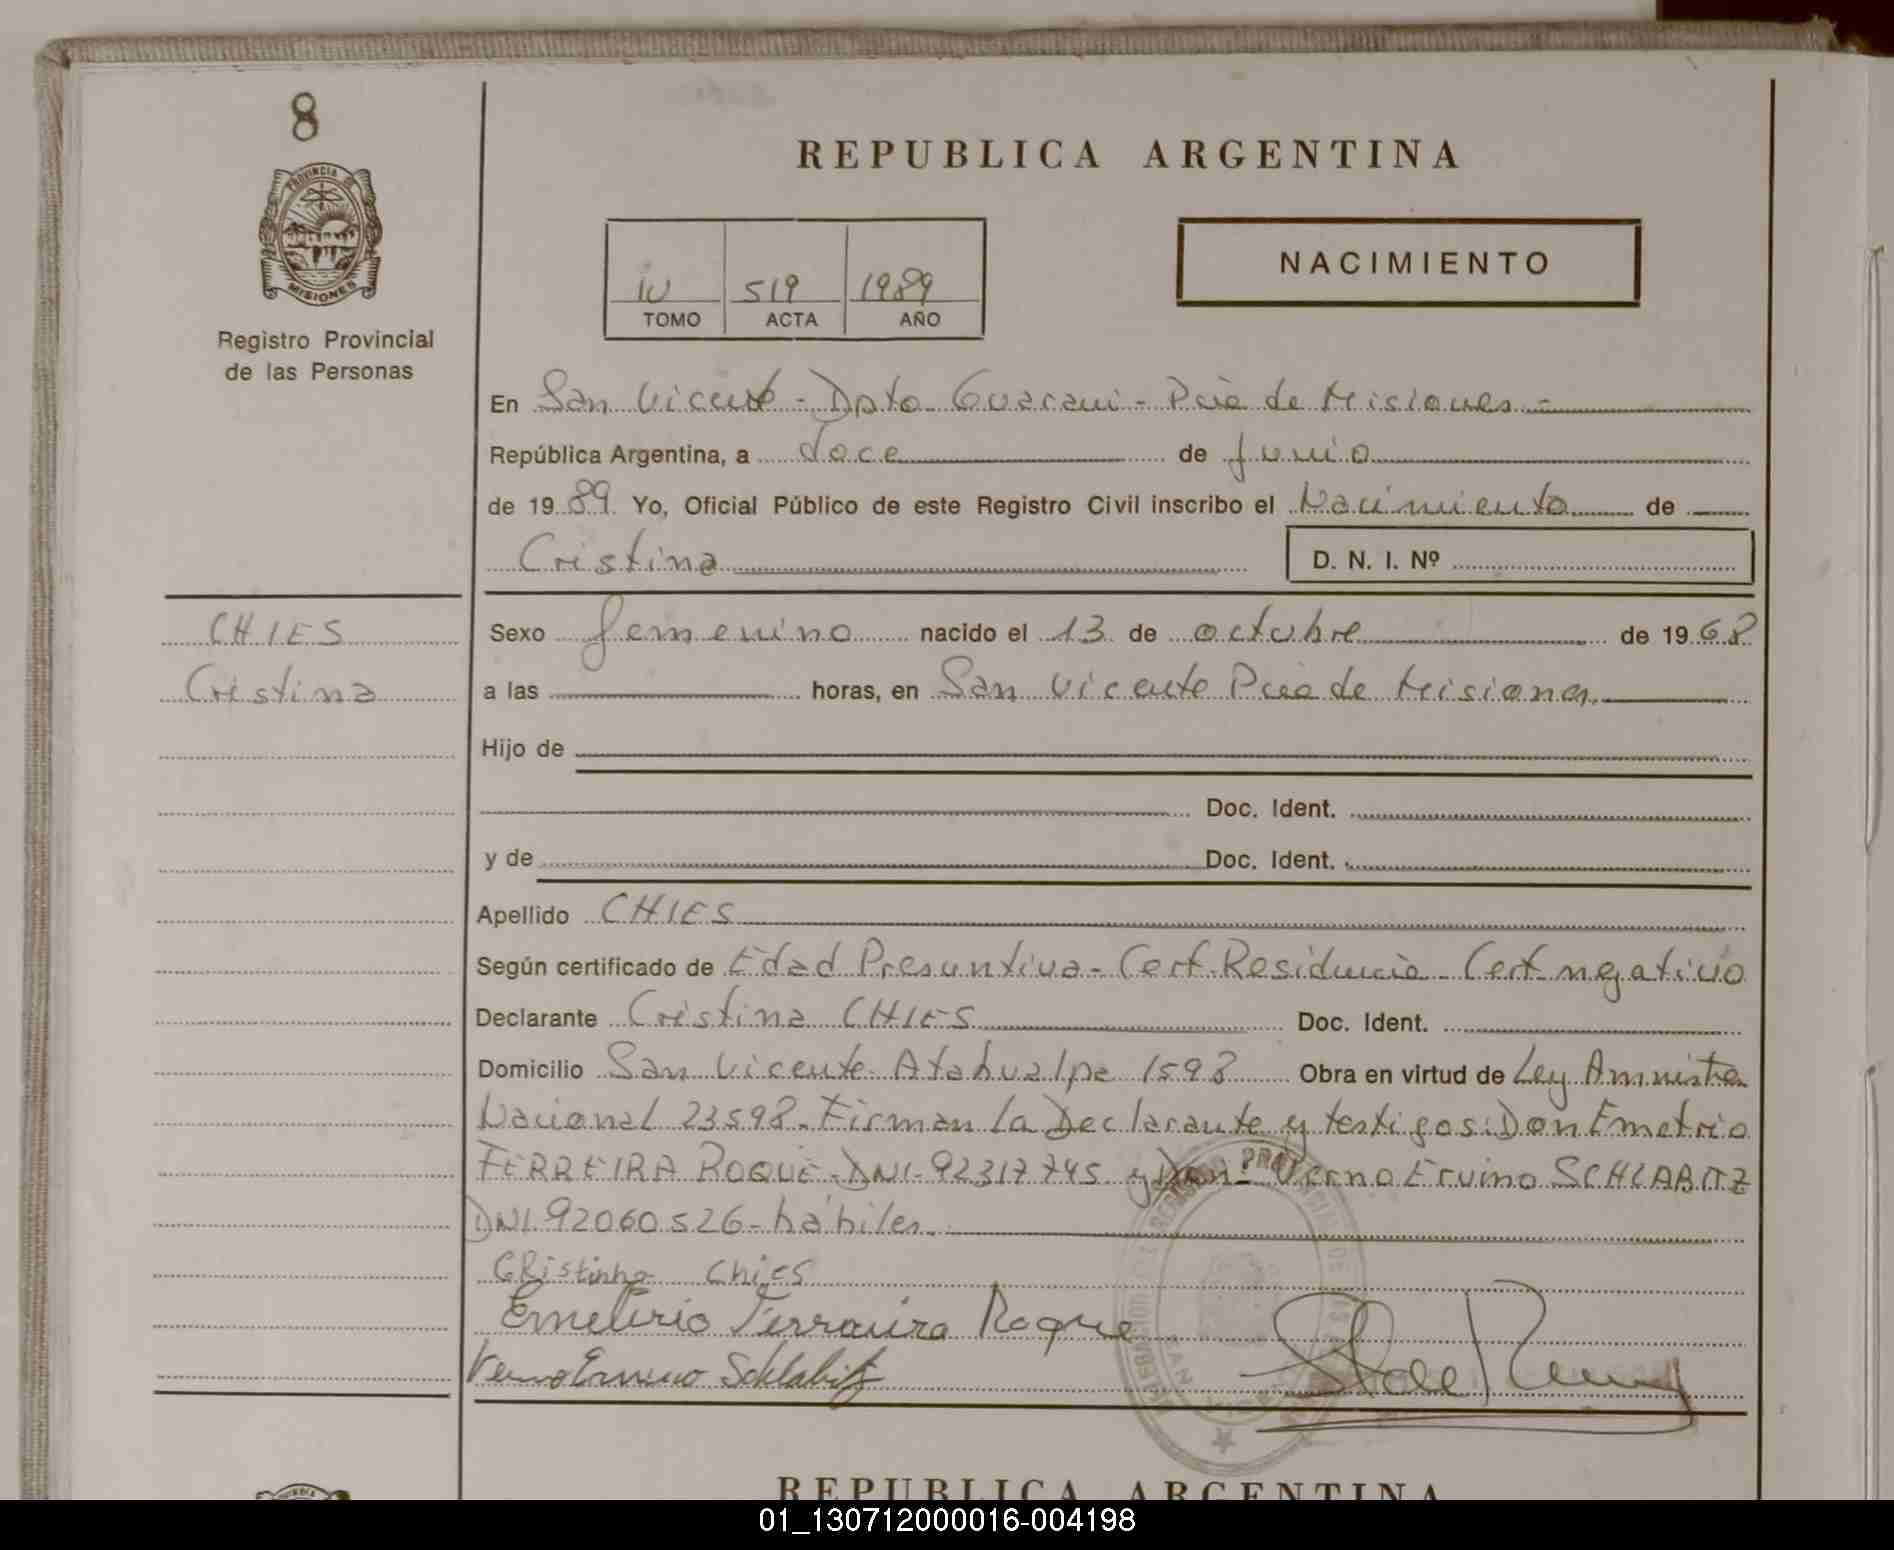 8
PROVINCIA DE
MISIONES
Registro Provincial
de las Personas
REPUBLICA ARGENTINA
IV 519 1989
TOMO ACTA AÑO
NACIMIENTO
En San Vicente - Dpto Guarani - Pcia de Misiones -
República Argentina, a doce de Junio
de 1989 Yo, Oficial Público de este Registro Civil inscribo el Nacimiento de
Cristina D. N. I. Nº
CHIES
Cristina
Sexo femenino nacido el 13 de octubre de 1968
a las horas, en San Vicente Pcia de Misiones
Hijo de
Doc. Ident.
y de Doc. Ident.
Apellido CHIES
Según certificado de Edad Presuntiva - Cert. Residencia - Cert negativo
Declarante Cristina CHIES Doc. Ident.
Domicilio San Vicente Atahualpa 1598 Obra en virtud de Ley Amnistia
Nacional 23598. Firman la Declarante y testigos: Don Emetrio
FERREIRA ROQUE - DNI. 92317745 y Don: Verno Ervino SCHLABITZ
DNI. 92060526 - hábiles.
CRistinha Chies
Emeterio Ferraira Roque
Verno Ervino Schlabitz
REPUBLICA ARGENTINA
01_130712000016-004198